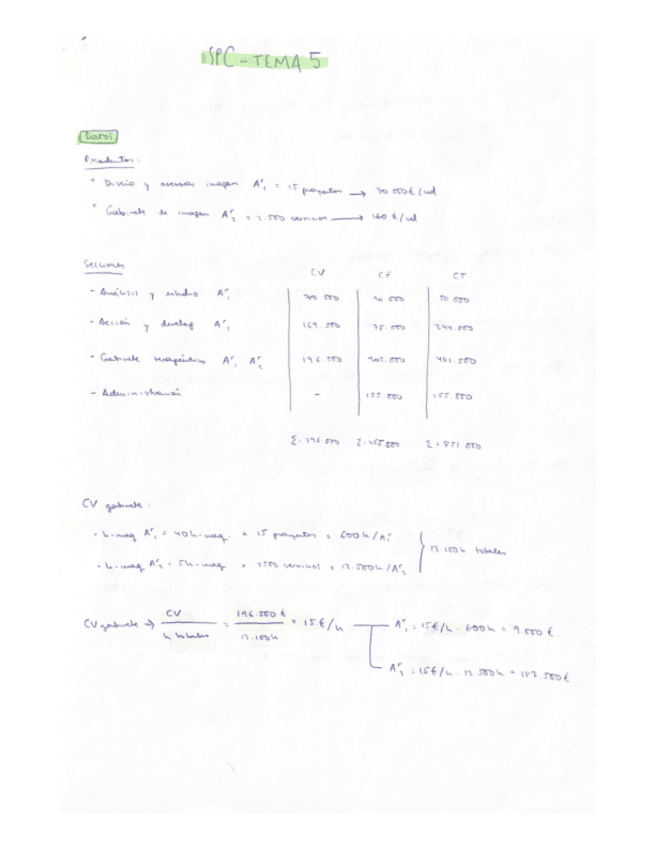 SPC - TEMA 5
Datos
Productos:
* Diseño y asesora imagen A'1 = 15 proyectos → 30 000 €/ud
* Gabinete de imagen A'2 = 2.500 servicios → 160 €/ud
Secciones
CV CF CT
- Análisis y estudio A'1 30.000 20.000 50.000
- Acción y A'1 169.500 75.000 244.500
- Gabinete terapéutico A'1 A'2 196.500 205.000 401.500
- Administración - 155.000 155.000
Σ = 396.000 Σ = 455.000 Σ = 851.000
CV gabinete:
· h-maq A'1 = 40 h-maq. × 15 proyectos = 600 h/A'1
· h-maq A'2 = 5 h-maq × 2500 servicios = 12.500 h/A'2
13.100 h totales
CV gabinete → CV / h totales = 196.500 € / 13.100 h = 15 €/h
A'1 = 15 €/h · 600 h = 9.000 €
A'2 = 15 €/h · 12.500 h = 187.500 €